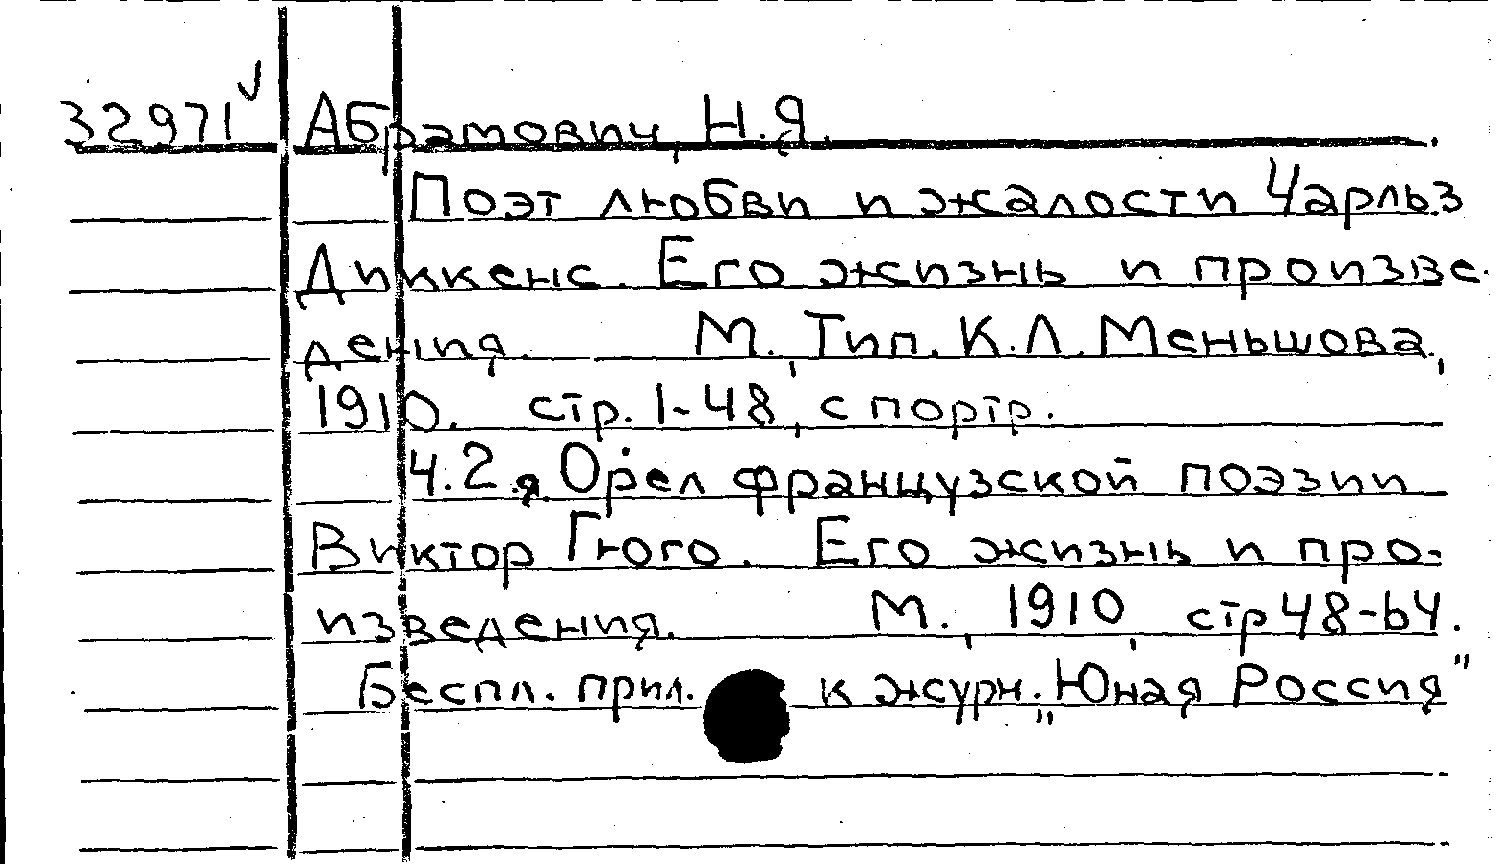 32971 Абрамович, Н.Я.
Поэт любви и жалости Чарльз
Диккенс. Его жизнь и произве-
дения. М., Тип. К.Л. Меньшова,
1910. стр. 1-48, с портр.
Ч.2.я. Орел французской поэзии
Виктор Гюго. Его жизнь и про-
изведения. М., 1910, стр 48-64.
Беспл. прил. к журн. „Юная Россия"